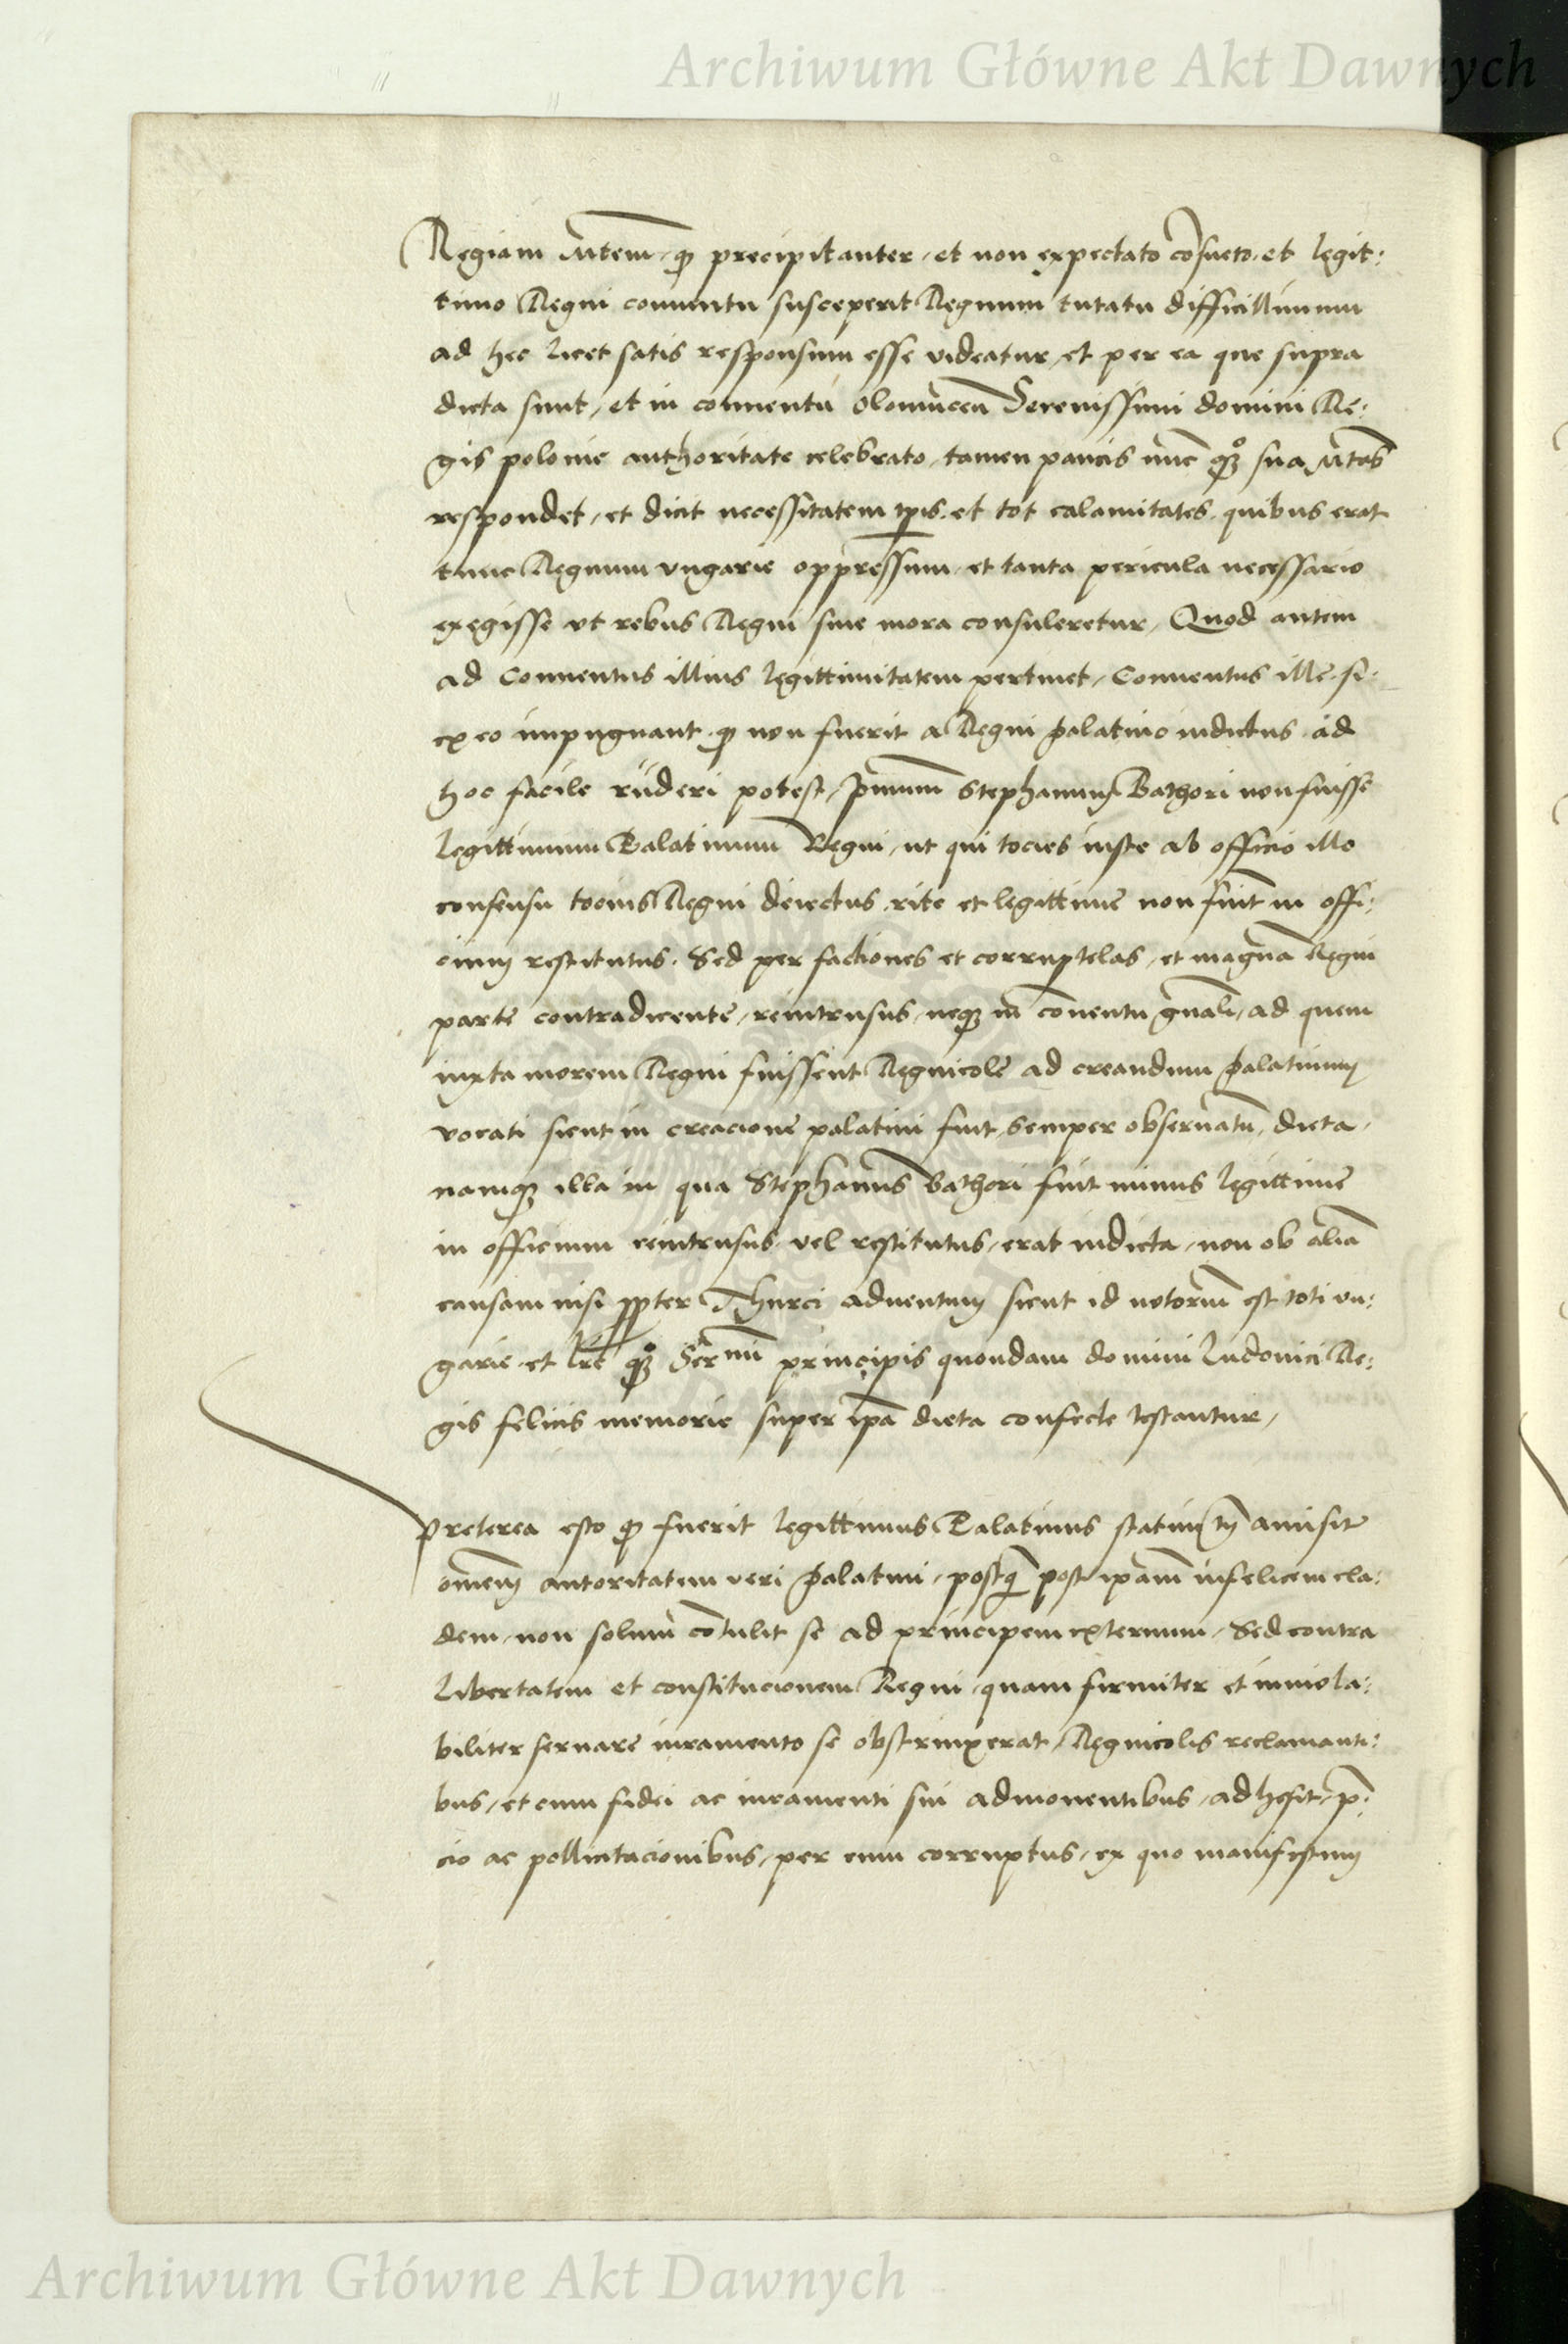 Archiwum Główne Akt Dawnych
Regiam Mtem, qp precipitanter, et non expectato cōsueto, et legit:
timo Regni conuentu susceperit Regnum tutatu difficillimum
ad hec licet satis responsum esse videatur, et per ea que supra
dicta sunt, et in conuentu olomuceñ Serenissimi domini Re:
gis polonie authoritate celebrato, tamen paucis nunc qȝ sua Mtas
respondet, et dicit necessitatem tpis. et tot calamitates. quibus erat
tunc Regnum vngarie oppressum, et tanta pericula necessario
exegisse vt rebus Regni sine mora consuleretur, Quod autem
ad Conuentus illius legittimitatem pertinet, Conuentus ille. si
ex eo impugnant. qp non fuerit a Regni palatino indictus. id
hoc facile rideri potest, pimum Stephanum Bathori non fuisse
legittimum Palatinum Regni, ut qui tocies iuste ab officio illo
consensu tocius Regni deiectus. rite et legittime non fuit in offi:
cium restitutus. Sed per factiones et corruptelas, et magna Regni
parte contradicente, reintrusus, neqȝ in cōuentu gnali, ad quem
iuxta morem Regni fuissent Regnicole ad creandum palatinum
vocati sicut in creacione palatini fuit semper obseruatū, dieta
namqȝ illa in qua Stephanus Bathori fuit minus legittime
in officium reintrusus vel restitutus, erat indicta, non ob aliā
causam nisi ppter Thurci aduentum sicut id notorium est toti vn:
garie. et lre qȝ Sermi principis quondam domini ludouici Re:
gis felicis memorie super ipa dieta confecte testantur,
Preterea esto qp fuerit legittimus Palatinus statim tn amisit
omem autoritatem veri palatini, postq̄ post ipam infelicem cla:
dem, non solum cōtulit se ad principem externum, Sed contra
libertatem et constitucionem Regni, quam firmiter et inuiola:
biliter seruare iuramento se obstrinxerat, Regnicolis reclamanti:
bus, et eum fidei ac iuramenti sui admonentibus, adhesit, p:
cio ac pollicitacionibus, per eum corruptus, ex quo manifestum
Archiwum Główne Akt Dawnych